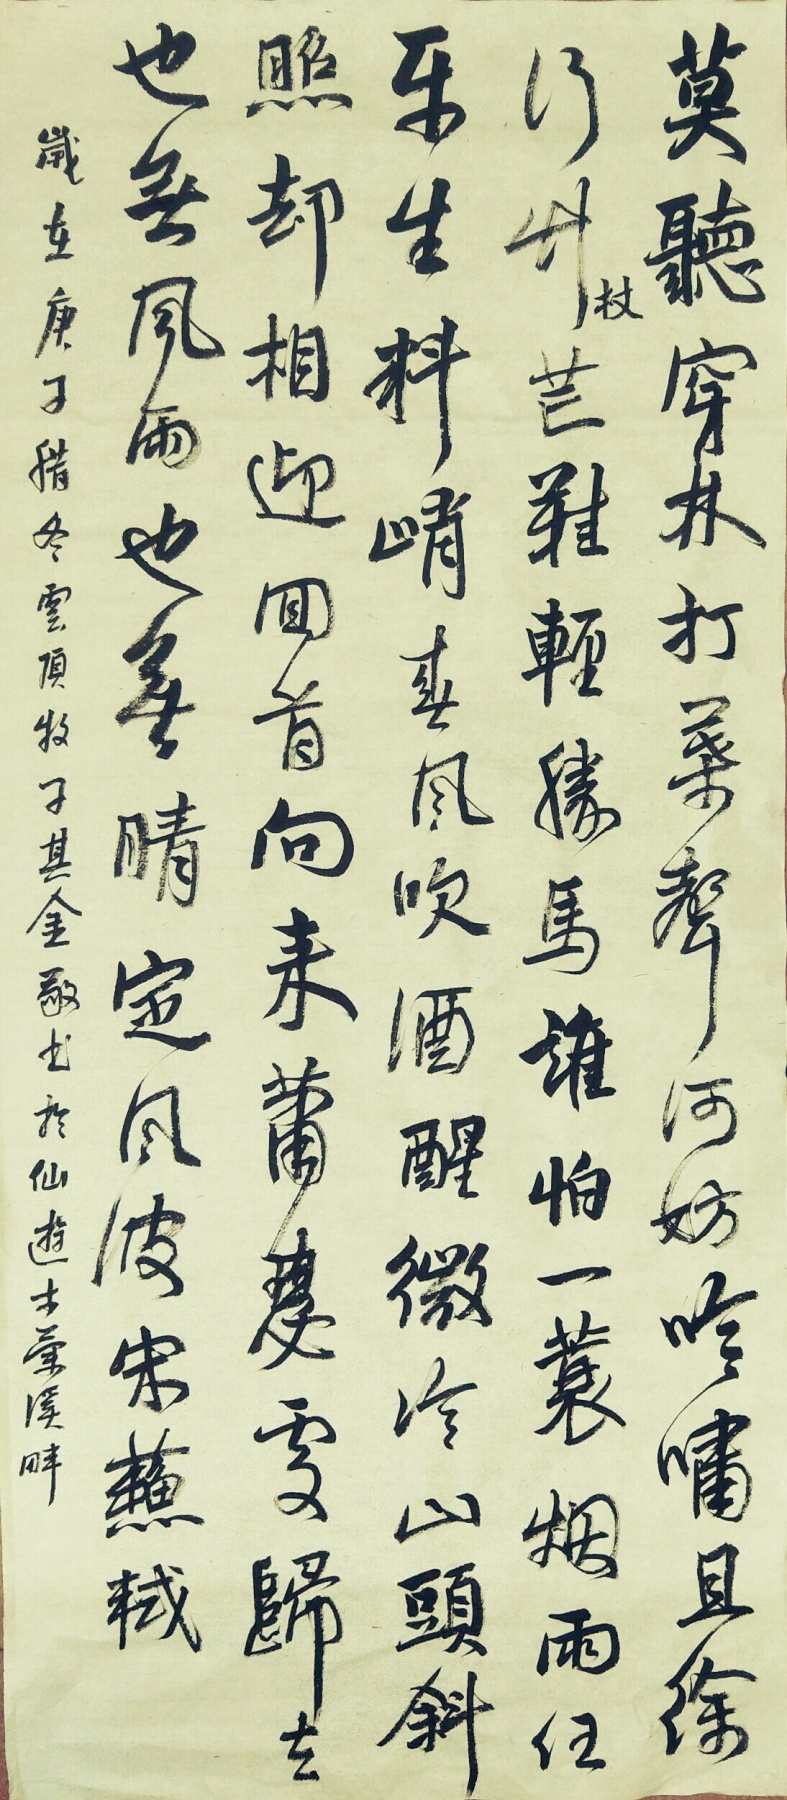 莫聽穿林打葉聲何妨吟嘯且徐
行竹杖芒鞋輕勝馬誰怕一蓑烟雨任
平生料峭春風吹酒醒微冷山頭斜
照却相迎回首向來蕭瑟處歸去
也無風雨也無晴定風波宋蘇軾
歲在庚子腊冬雲頂牧子其金敬书於仙遊木蘭溪畔